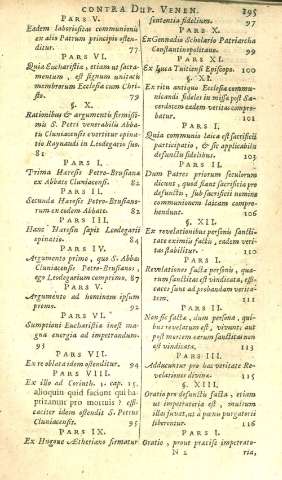 CONTRA DUP. VENEN. 295
PARS V.
Eadem laborissitas communionis
ex aliis Patrum principio osten-
ditur. 77
PARS VI.
Quia Eucharistia, etiam ut sacra-
mentum, est signum unitatis
membrorum Ecclesiæ cum Chri-
sto. 79
§. X.
Rationibus & argumentis firmissi-
mis S. Petri venerabilis Abba-
tu Cluniacensis evertitur opina-
tio Raynaudi in Leodegario suo.
81
PARS I.
Trima Hæresis Petro-Brusiana
ex Abbate Cluniacensi. 82
PARS II.
Secunda Hæresis Petro-Brusiano-
rum ex eodem Abbate. 82
PARS III.
Hanc Hæresin sapit Leodegarii
opinatio. 84
PARS IV.
Argumento primo, quo S. Abbas
Cluniacensis Petro-Brusianos,
ego Leodegarium comprimo. 87
PARS V.
Argumento ad hominem ipsum
premo. 92
PARS VI.
Sumptioni Eucharistiæ inest ma-
gna energia ad impetrandum.
93
PARS VII.
Ex re oblata idem ostenditur. 94
PARS VIII.
Ex illo ad Corinth. 1. cap. 15.
alioquin quid faciunt qui ba-
ptizantur pro mortuis? effi-
caciter idem ostendit S. Petrus
Cluniacensis. 95
PARS IX.
Ex Hugone Ætheriano firmatur
sententia fidelium. 97
PARS X.
Ex Gennadio Scholario Patriarcha
Constantinopolitano. 99
PARS XI.
Ex Luca Tuitiensi Episcopo. 100
§. XI.
Ex ritu antiquo Ecclesiæ commu-
nicandi fideles in missa post Sa-
cerdotem eadem veritas compro-
batur. 101
PARS I.
Quia communio laica est sacrificii
participatio, & sic applicabilis
defunctis fidelibus. 103
PARS II.
Dum Patres priorum sæculorum
dicunt, quod fiant sacrificia pro
defunctis, sub sacrificii nomine
communionem laicam compre-
hendunt. 106
§. XII.
Ex revelationibus personis sancti-
tate eximiis factis, eadem veri-
tas stabilitur. 110
PARS I.
Revelationes factæ personis, qua-
rum sanctitas est vindicata, effi-
caces sunt ad probandam verita-
tem. 111
PARS II.
Non sic factæ, dum persona, qui-
bus revelatum est, vivunt: aut
post mortem earum sanctitas non
est vindicata. 113
PARS III.
Adducuntur pro hac veritate Re-
velationes divinæ. 115
§. XIII.
Oratio pro defunctis facta, etiam
ut impetratoria est, multum
illos juvat, ut à pœnis purgatorii
liberentur. 116
PARS I.
Oratio, prout præcisè impetrato-
N 2 ria,